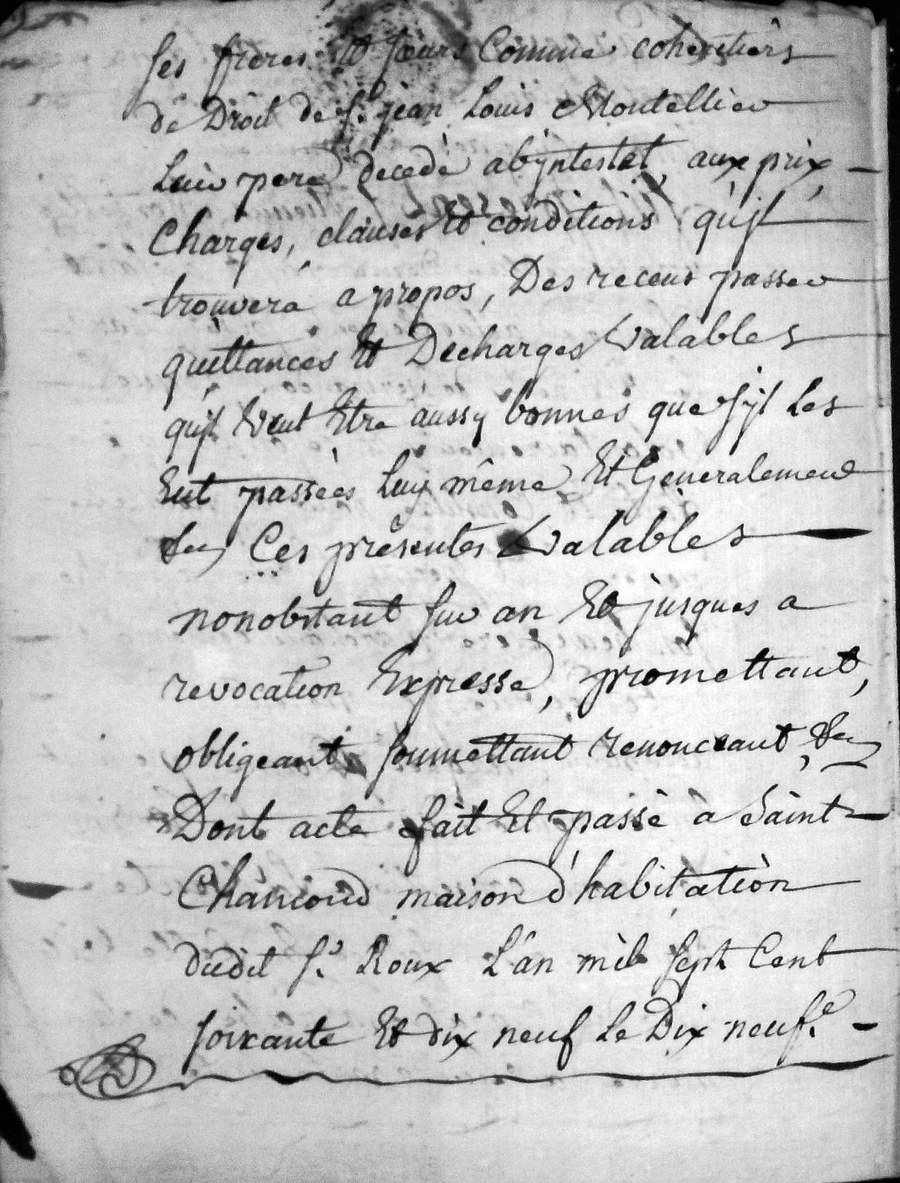 ses freres Et sœurs Comme coheritiers
de Droit de Sr jean Louis Montellier
Leur pere decedé abyntestat, aux prix,
Charges, clauses Et conditions qu'jl
trouvera a propos, Des receus passer
quittances Et Decharges Valables
qu'jl Veut Etre aussy bonnes que s'jl Les
Eut passées Luy même Et Generalement
&c Ces presentes Valables
nonobstant sur an Et jusques a
revocation Expresse, promettant,
obligeant, soumettant renonceant, &c
Dont acte fait Et passé à Saint
Chamond maison d'habitation
dudit Sr Roux L'an mil sept Cent
soixante Et dix neuf Le Dix neufe